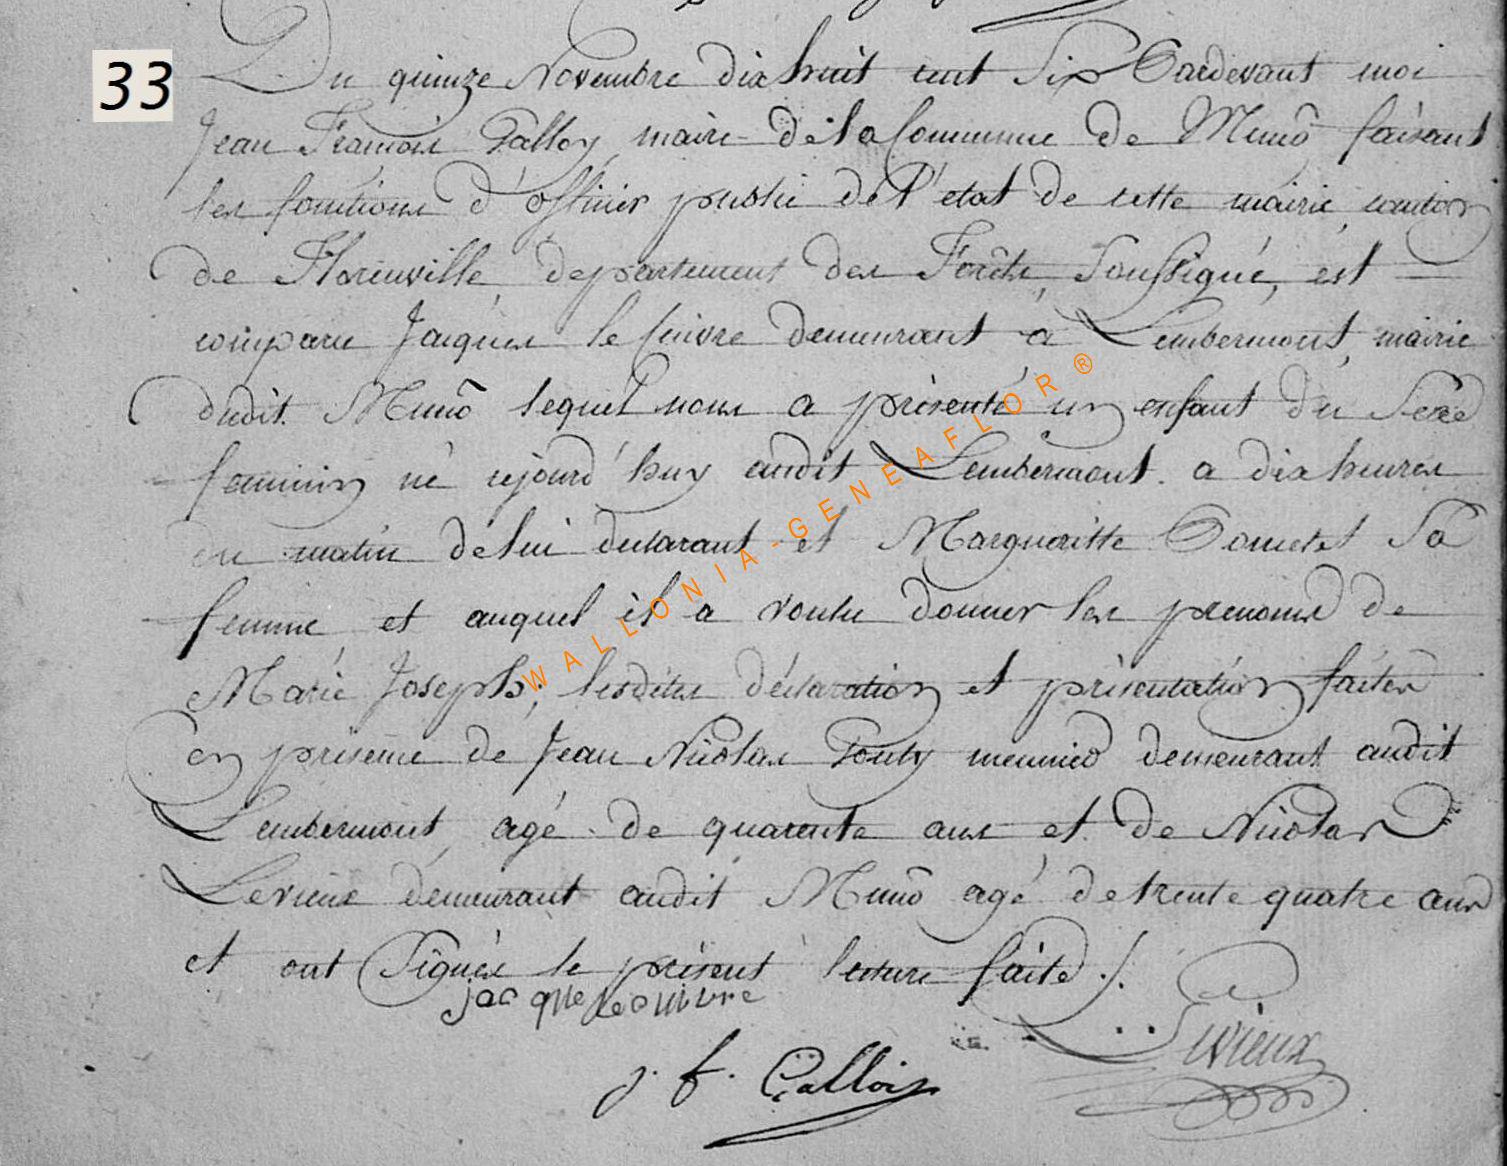 33
Du quinze Novembre dix huit cent Six Pardevant moi
Jean Francois Galloy, maire de la Commune de Munô faisant
les fonctions d'officier public de l'état de cette mairie, canton
de Florenville, departement des Forêts, Soussigné, est
comparu Jacques le Cuivre demeurant à Lambermont, mairie
dudit Munô lequel nous a présenté un enfant du Sexe
feminin né cejourd'huy audit Lambermont a dix heures
du matin de lui declarant et Margueritte Sa
femme et auquel il a voulu donner les prenoms de
Marie Joseph; lesdites déclaration et présentation faites
en présence de Jean Nicolas Pouty meunier demeurant audit
Lambermont, agé de quarante ans et de Nicolas
Levieux demeurant audit Munô agé de trente quatre ans
et ont Signés le présent lecture faite ./.
jacque Lecuivre
Levieux
j. f. Gallois
WALLONIA-GENEAFLOR®